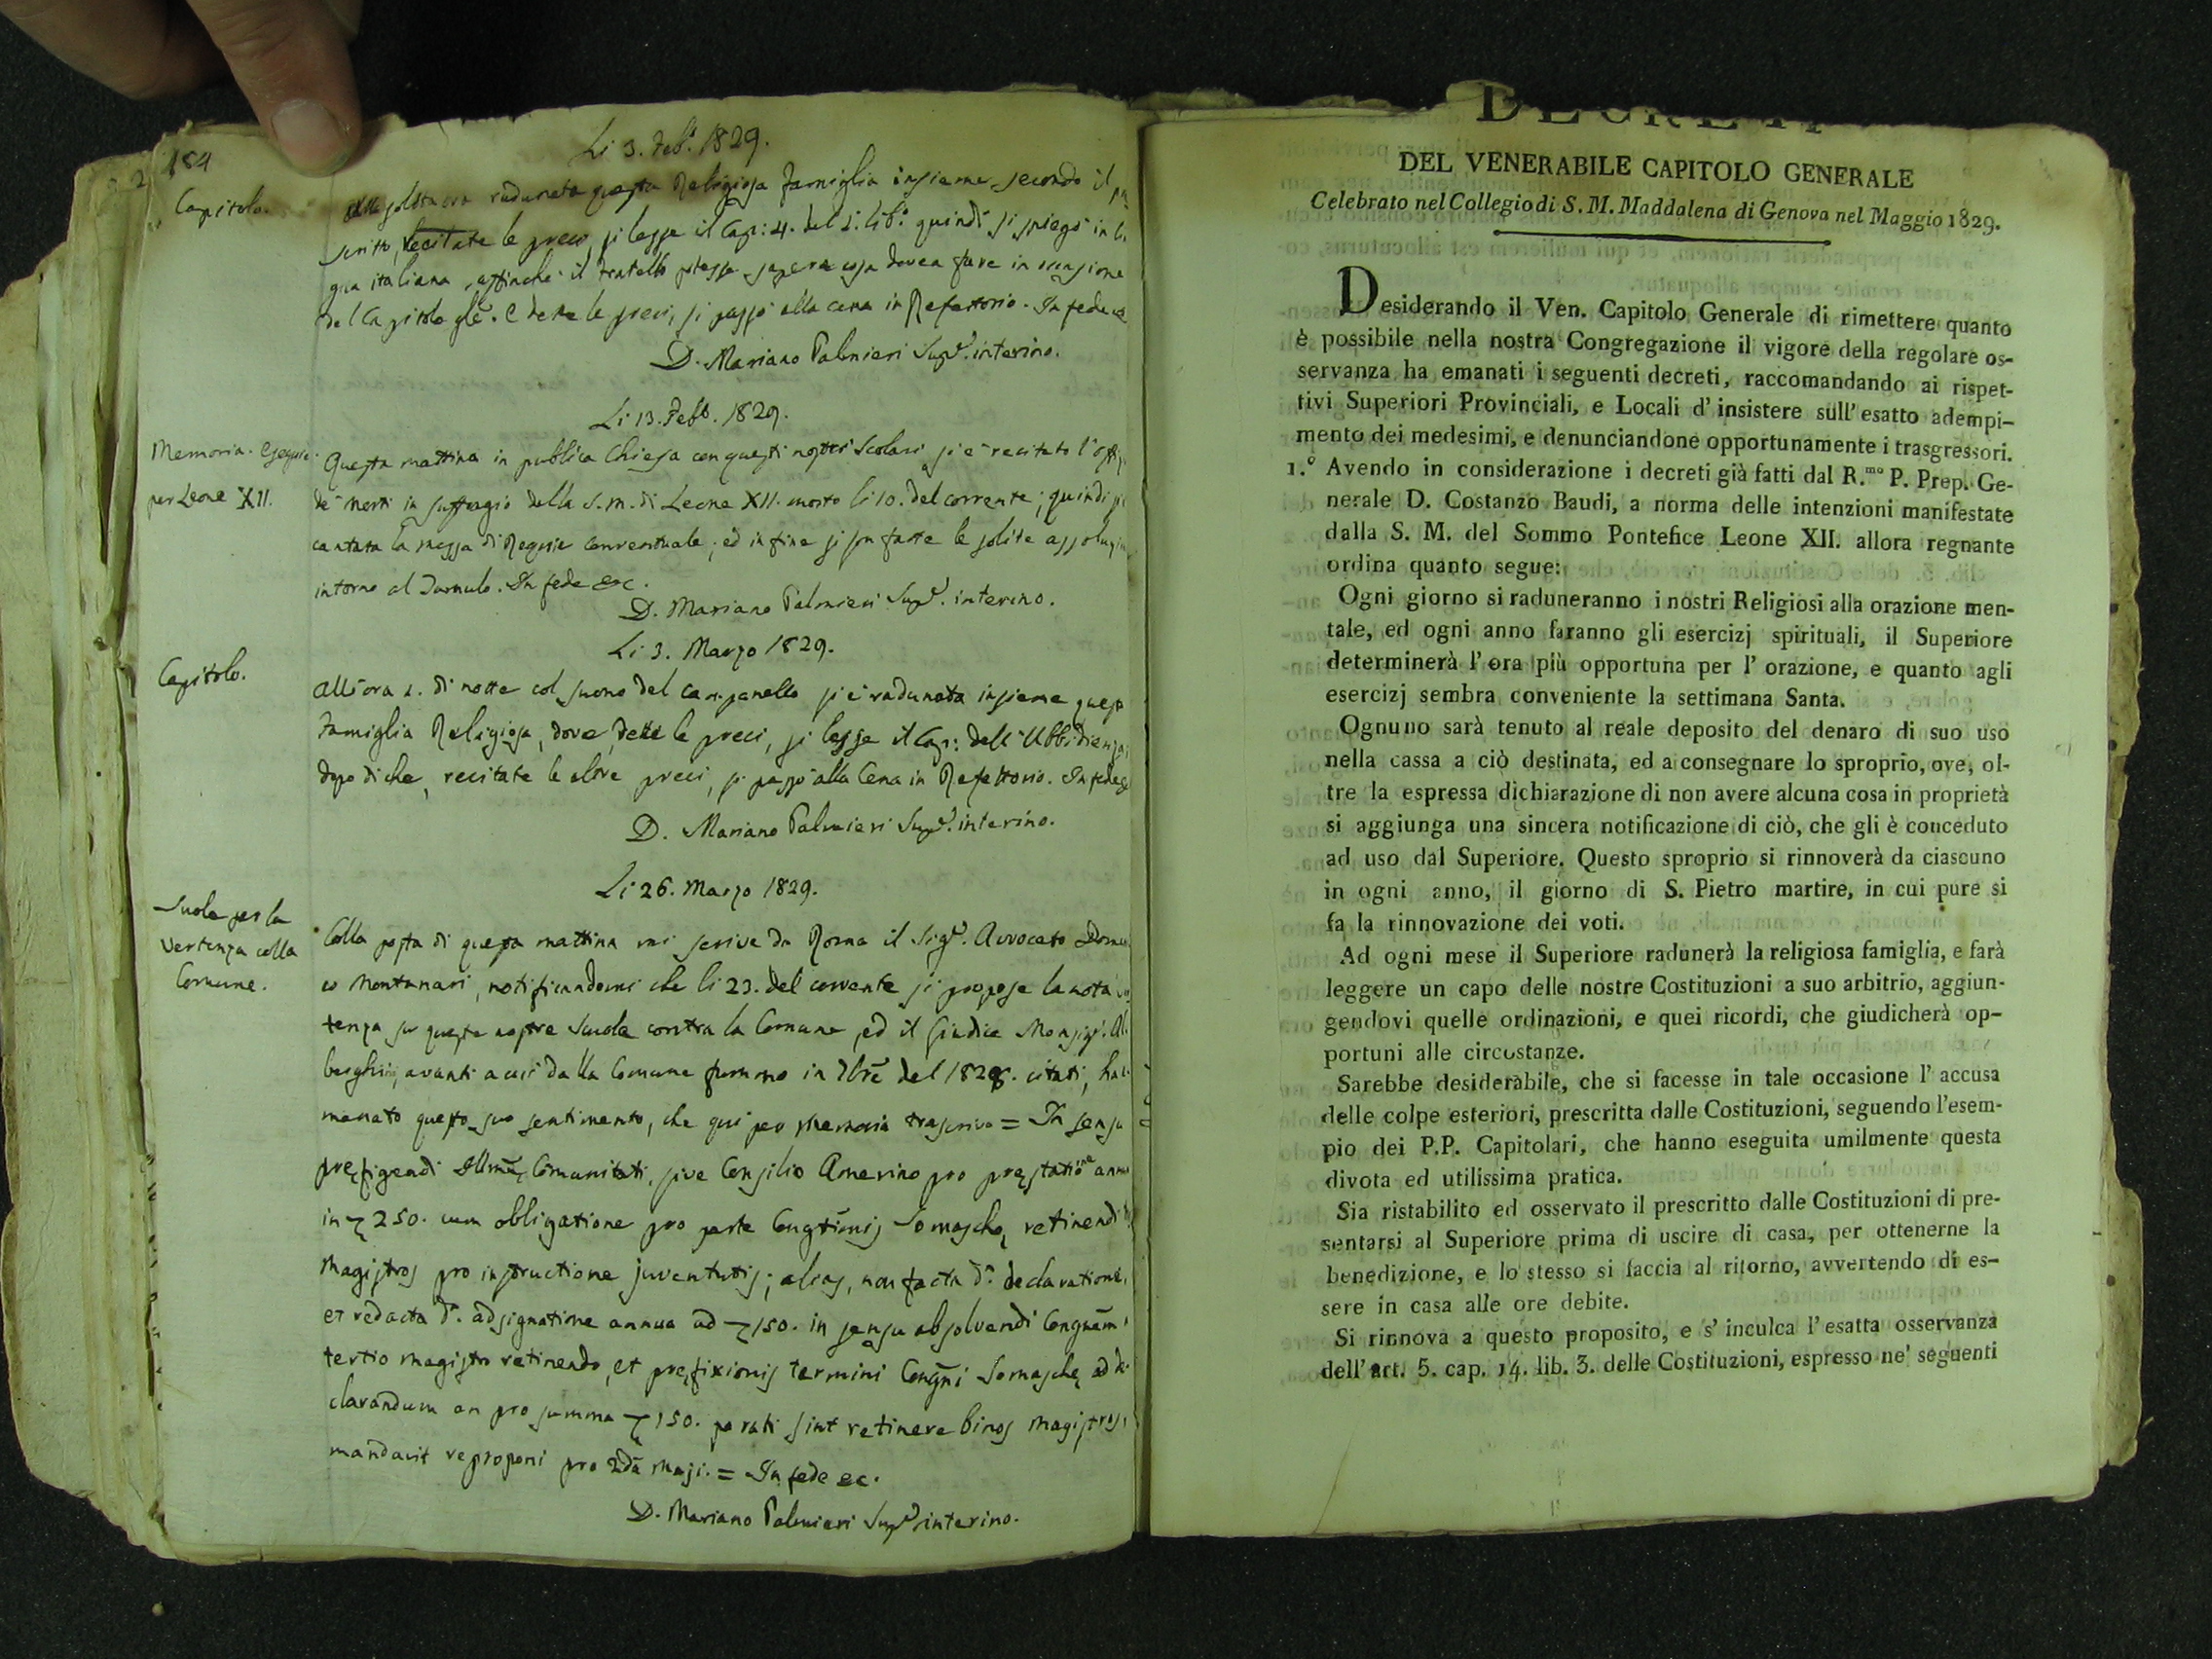 184
Li 3. Feb.º 1829.
Capitolo.
Alla solita ora radunata questa Religiosa famiglia insieme secondo il
scritto, recitate le preci, si lesse il Cap: 4. del 2. lib.º quindi si spiegò in
gua italiana, affinchè il fratello potesse sapere cosa dovea fare in occasione
del Capitolo gle. E dette le preci, si passò alla cena in Refettorio. In fede
D. Mariano Palmieri Supe. interino.
Li 13. Febb. 1829.
Memoria. Esequie
per Leone XII.
Questa mattina in publica Chiesa con questi nostri Scolari si è recitato l'
de' morti in suffragio della S. M. di Leone XII. morto li 10. del corrente; quindi
cantata la messa di Requie conventuale; ed in fine si son fatte le solite
intorno al Tumulo. In fede ec.
D. Mariano Palmieri Supe. interino.
Li 3. Marzo 1829.
Capitolo.
All'ora 1. di notte col suono del campanello si è radunata insieme
Famiglia Religiosa, dove, dette le preci, si lesse il Cap: dell'Ubbidienza;
dopo di che, recitate le altre preci, si passò alla Cena in Refettorio. In fede
D. Mariano Palmieri Supe. interino.
Li 26. Marzo 1829.
Scuole per la
vertenza colla
Comune.
Colla posta di questa mattina mi scrive da Roma il Sigr. Avvocato
co Montanari, notificandomi che li 23. del corrente si propose la nota
tenza su queste nostre Scuole contra la Comune, ed il Giudice Monsigr. Al
berghini, avanti a cui dalla Comune fummo in Xbre del 1828. citati, ha
manato questo suo sentimento, che qui per memoria trascrivo = In sensu
pręfigendi Illmę Comunitati, sive Consilio Amerino pro pręstatione
in 250. cum obligatione pro parte Congtionis Somaschę retinendi
Magistros pro instructione juventutis; alias, non facta d.ª declaratione,
et redacta d.ª adsignatione annua ad 150. in sensu absolvendi Congnem
tertio magistro retinendo, et pręfixionis termini Congni Somaschę ad
clarandum an pro summa 150. parati sint retinere binos Magistros,
mandavit reproponi pro 2da Maji. = In fede ec.
D. Mariano Palmieri Supe. interino.
DECRETI
DEL VENERABILE CAPITOLO GENERALE
Celebrato nel Collegio di S. M. Maddalena di Genova nel Maggio 1829.
Desiderando il Ven. Capitolo Generale di rimettere quanto
è possibile nella nostra Congregazione il vigore della regolare os-
servanza ha emanati i seguenti decreti, raccomandando ai rispet-
tivi Superiori Provinciali, e Locali d' insistere sull' esatto adempi-
mento dei medesimi, e denunciandone opportunamente i trasgressori.
1.º Avendo in considerazione i decreti già fatti dal R.mo P. Prep. Ge-
nerale D. Costanzo Baudi, a norma delle intenzioni manifestate
dalla S. M. del Sommo Pontefice Leone XII. allora regnante
ordina quanto segue:
Ogni giorno si raduneranno i nostri Religiosi alla orazione men-
tale, ed ogni anno faranno gli esercizj spirituali, il Superiore
determinerà l' ora più opportuna per l' orazione, e quanto agli
esercizj sembra conveniente la settimana Santa.
Ognuno sarà tenuto al reale deposito del denaro di suo uso
nella cassa a ciò destinata, ed a consegnare lo sproprio, ove, ol-
tre la espressa dichiarazione di non avere alcuna cosa in proprietà
si aggiunga una sincera notificazione di ciò, che gli è conceduto
ad uso dal Superiore. Questo sproprio si rinnoverà da ciascuno
in ogni anno, il giorno di S. Pietro martire, in cui pure si
fa la rinnovazione dei voti.
Ad ogni mese il Superiore radunerà la religiosa famiglia, e farà
leggere un capo delle nostre Costituzioni a suo arbitrio, aggiun-
gendovi quelle ordinazioni, e quei ricordi, che giudicherà op-
portuni alle circostanze.
Sarebbe desiderabile, che si facesse in tale occasione l' accusa
delle colpe esteriori, prescritta dalle Costituzioni, seguendo l'esem-
pio dei P.P. Capitolari, che hanno eseguita umilmente questa
divota ed utilissima pratica.
Sia ristabilito ed osservato il prescritto dalle Costituzioni di pre-
sentarsi al Superiore prima di uscire di casa, per ottenerne la
benedizione, e lo stesso si faccia al ritorno, avvertendo di es-
sere in casa alle ore debite.
Si rinnova a questo proposito, e s' inculca l' esatta osservanza
dell' art. 5. cap. 14. lib. 3. delle Costituzioni, espresso ne' seguenti